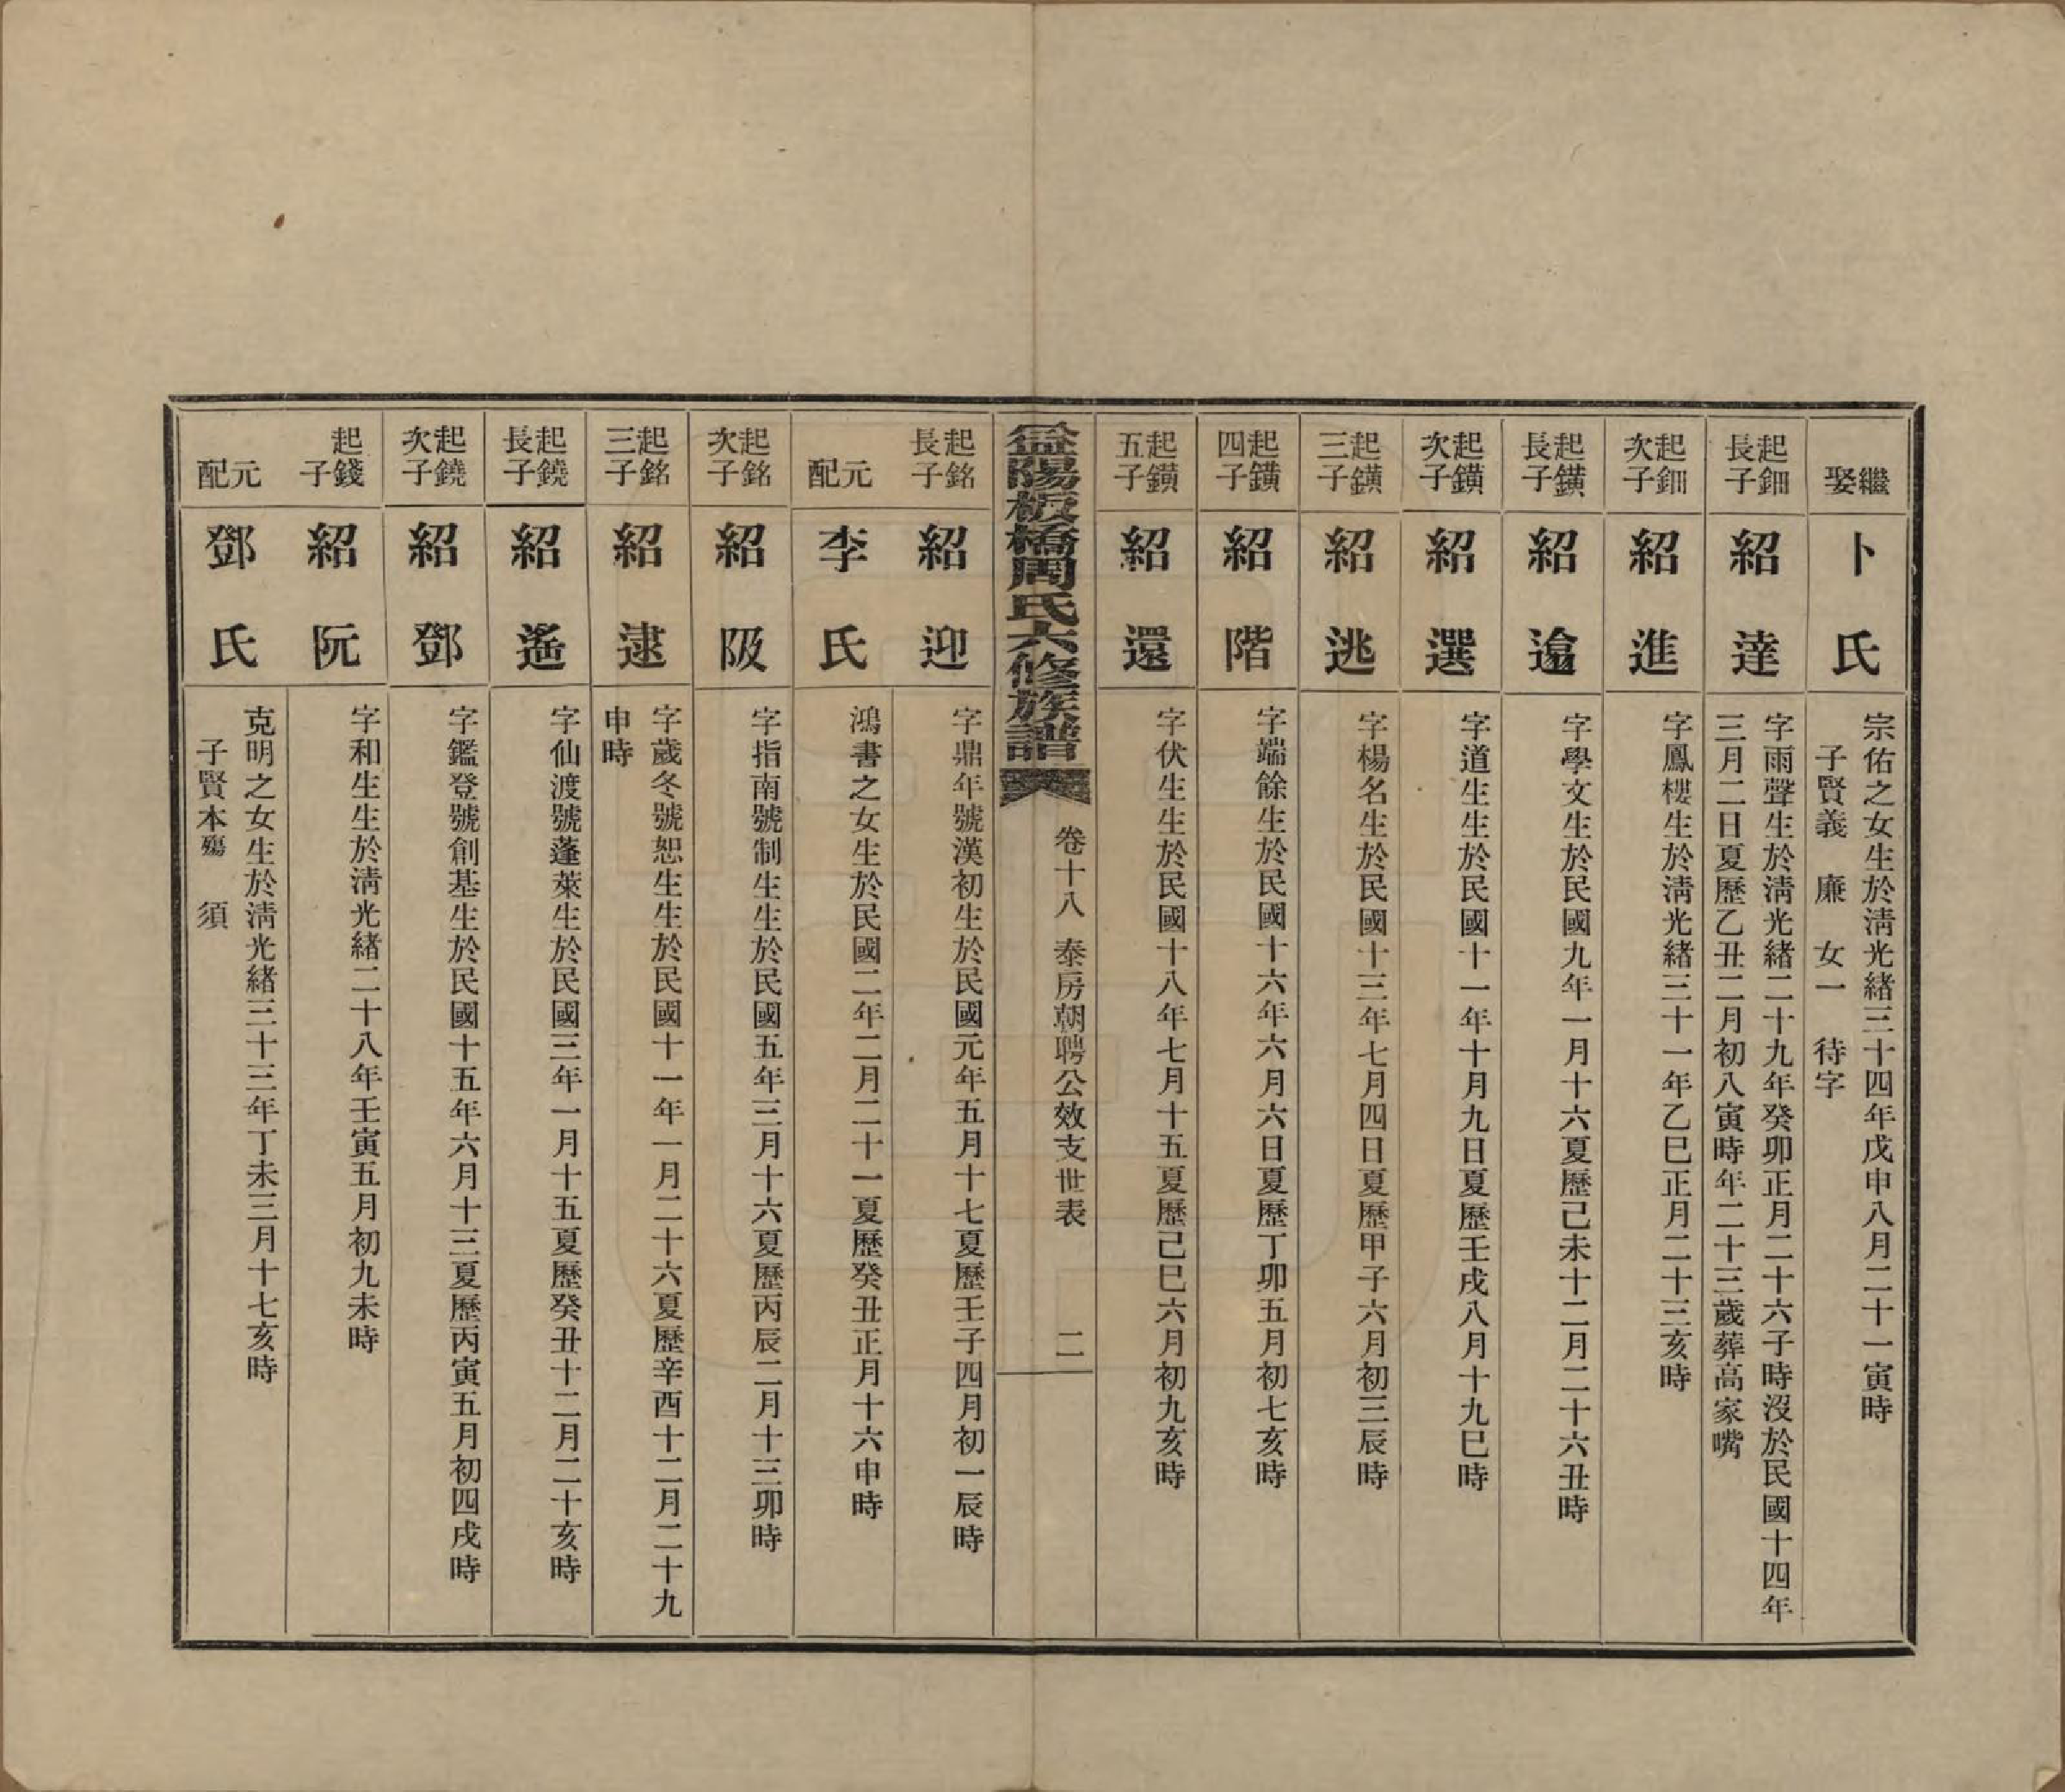 繼娶
卜氏
宗佑之女生於清光緒三十四年戊申八月二十一寅時
子賢義 廉 女一 待字
起鈿長子
紹達
字雨聲生於清光緒二十九年癸卯正月二十六子時沒於民國十四年
三月二日夏歷乙丑二月初八寅時年二十三歲葬高家嘴
起鈿次子
紹進
字鳳樓生於清光緒三十一年乙巳正月二十三亥時
起鐄長子
紹逾
字學文生於民國九年一月十六夏歷己未十二月二十六丑時
起鐄次子
紹選
字道生生於民國十一年十月九日夏歷壬戌八月十九巳時
起鐄三子
紹逃
字楊名生於民國十三年七月四日夏歷甲子六月初三辰時
起鐄四子
紹階
字端餘生於民國十六年六月六日夏歷丁卯五月初七亥時
起鐄五子
紹還
字伏生生於民國十八年七月十五夏歷己巳六月初九亥時
益陽板橋周氏六修族譜
卷十八 泰房朝聘公效支世表 二
起銘長子
紹迎
字鼎年號漢初生於民國元年五月十七夏歷壬子四月初一辰時
元配
李氏
鴻書之女生於民國二年二月二十一夏歷癸丑正月十六申時
起銘次子
紹阪
字指南號制生生於民國五年三月十六夏歷丙辰二月十三卯時
起銘三子
紹逮
字歲冬號恕生生於民國十一年一月二十六夏歷辛酉十二月二十九
申時
起鐃長子
紹遙
字仙渡號蓬萊生於民國三年一月十五夏歷癸丑十二月二十亥時
起鐃次子
紹鄧
字鑑登號創基生於民國十五年六月十三夏歷丙寅五月初四戌時
起錢子
紹阮
字和生生於清光緒二十八年壬寅五月初九未時
元配
鄧氏
克明之女生於清光緒三十三年丁未三月十七亥時
子賢本殤 須